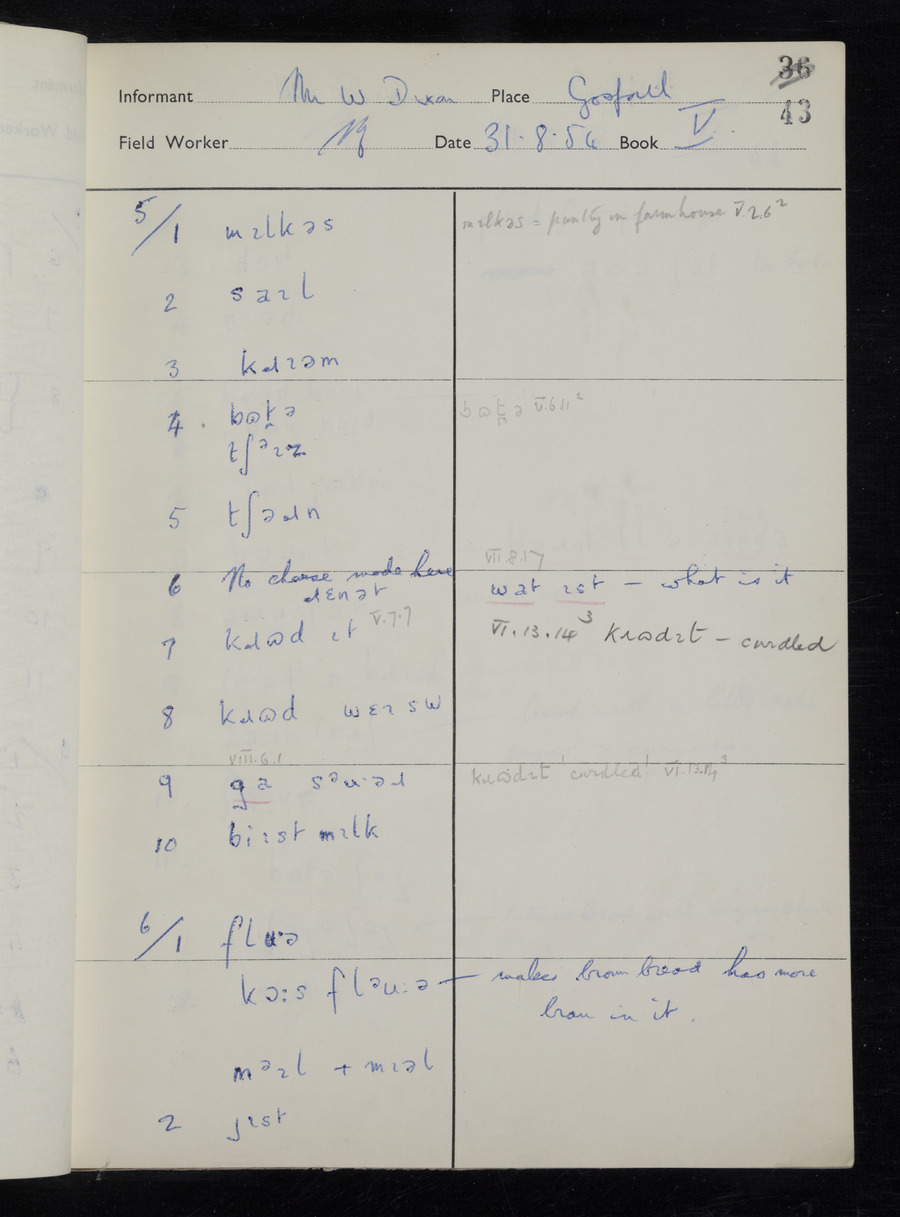 36
Informant Mr W Dixon Place Gosforth
43
Field Worker Date 31.8.54 Book V
5/1 mɪlkəs
mɪlkəs = pantry in farmhouse V.2.6²
2 saɪl
3 kɹɪəm
4. bʊt̪ə
bʊt̪ə V.6.11²
tʃᵊɪz
5 tʃəɹn
VIII.8.17
6 No cheese made here
wat ɪst — what is it
ɹɛnət
7 kɹʊd ɪt V.7.7
VI.13.14³ kɹʊdɪt — curdled
8 kɹʊd wɛɪ sw
VIII.6.1
9 ga səuəɹ
kɹʊdɪt 'curdled' VI.13.14³
10 biɪst mɪlk
6/1 fluə
kəːs fləuːə — makes brown bread has more
bran in it.
mᵊɪl + mɪəl
2 jɪst